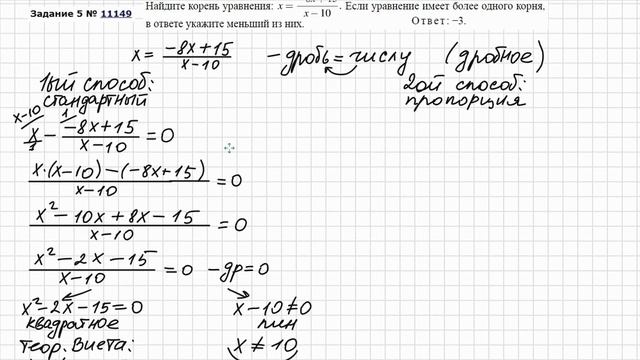 Задание 5 № 11149
Найдите корень уравнения: x = -8x+15 / x-10. Если уравнение имеет более одного корня,
в ответе укажите меньший из них.
Ответ: −3.
x = -8x+15 / x-10 - дробь = числу (дробное)
1ый способ:
стандартный
2ой способ:
пропорция
x-10 1
x/1 - -8x+15 / x-10 = 0
x·(x-10)-(-8x+15) / x-10 = 0
x²-10x+8x-15 / x-10 = 0
x²-2x-15 / x-10 = 0 - др=0
x²-2x-15=0 x-10≠0
квадратное лин
теор. Виета: x≠10